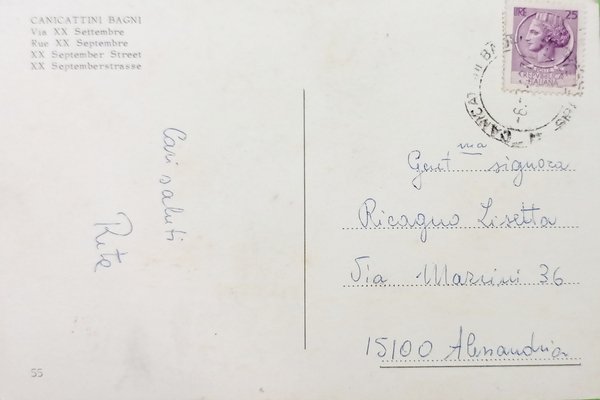 CANICATTINI BAGNI
Via XX Settembre
Rue XX Septembre
XX September Street
XX Septemberstrasse
LIRE 25
REPUBBLICA
ITALIANA
Cari saluti
Rita
Gent.ma signora
Ricagno Lisetta
Via Mazzini 36
15100 Alessandria
55